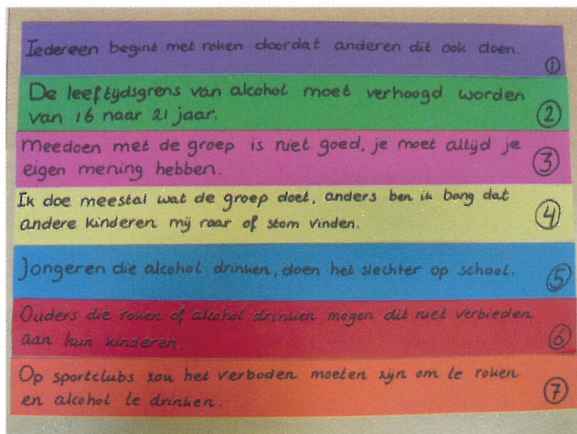 Iedereen begint met roken doordat anderen dit ook doen.
①
De leeftijdsgrens van alcohol moet verhoogd worden
van 16 naar 21 jaar.
②
Meedoen met de groep is niet goed, je moet altijd je
eigen mening hebben.
③
Ik doe meestal wat de groep doet, anders ben ik bang dat
andere kinderen mij raar of stom vinden.
④
Jongeren die alcohol drinken, doen het slechter op school.
⑤
Ouders die roken of alcohol drinken mogen dit niet verbieden
aan hun kinderen.
⑥
Op sportclubs zou het verboden moeten zijn om te roken
en alcohol te drinken.
⑦